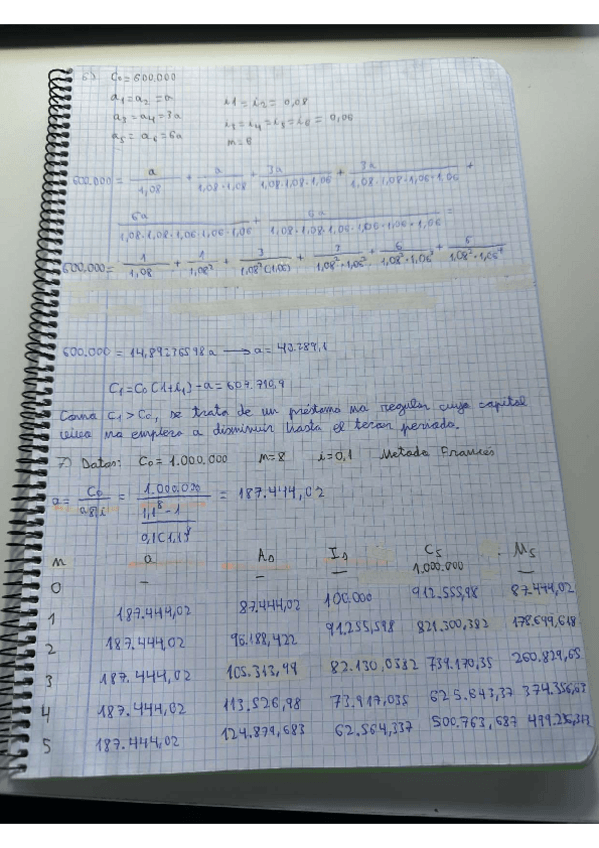 6) C₀ = 600.000
a₁ = a₂ = a    i1 = i2 = 0,08
a₃ = a₄ = 3a    i₃ = i₄ = i₅ = i₆ = 0,06
a₅ = a₆ = 6a    m = 6
600.000 = a/1,08 + a/1,08·1,08 + 3a/1,08·1,08·1,06 + 3a/1,08·1,08·1,06·1,06 +
6a/1,08·1,08·1,06·1,06·1,06 + 6a/1,08·1,08·1,06·1,06·1,06·1,06 =
600.000 = 1/1,08 + 1/1,08² + 3/1,08²(1,06) + 3/1,08²·1,06² + 6/1,08²·1,06³ + 6/1,08²·1,06⁴
600.000 = 14,89276598a → a = 40.789,1
C₁ = C₀(1+i₁) - a = 607.710,9
Como C₁ > C₀, se trata de un préstamo no regular cuyo capital
vivo no empieza a disminuir hasta el tercer periodo.
7) Datos: C₀ = 1.000.000    m = 8    i = 0,1    Metodo Francés
a = C₀/a8i = 1.000.000/((1,1⁸ - 1)/0,1(1,1)⁸) = 187.444,02
m    a    As    Is    Cs    Ms
0    —    —    —    1.000.000    —
1    187.444,02    87.444,02    100.000    912.555,98    87.444,02
2    187.444,02    96.188,422    91.255,598    821.300,382    178.699,618
3    187.444,02    105.313,99    82.130,0382    739.170,35    260.829,65
4    187.444,02    113.526,98    73.917,035    625.643,37    374.356,63
5    187.444,02    124.879,683    62.564,337    500.763,687    499.236,313